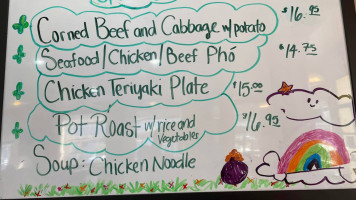 Corned Beef and Cabbage w/potato $16.95
Seafood/Chicken/Beef Phó $14.75
Chicken Teriyaki Plate $15.00
Pot Roast w/rice and vegetables $16.95
Soup: Chicken Noodle